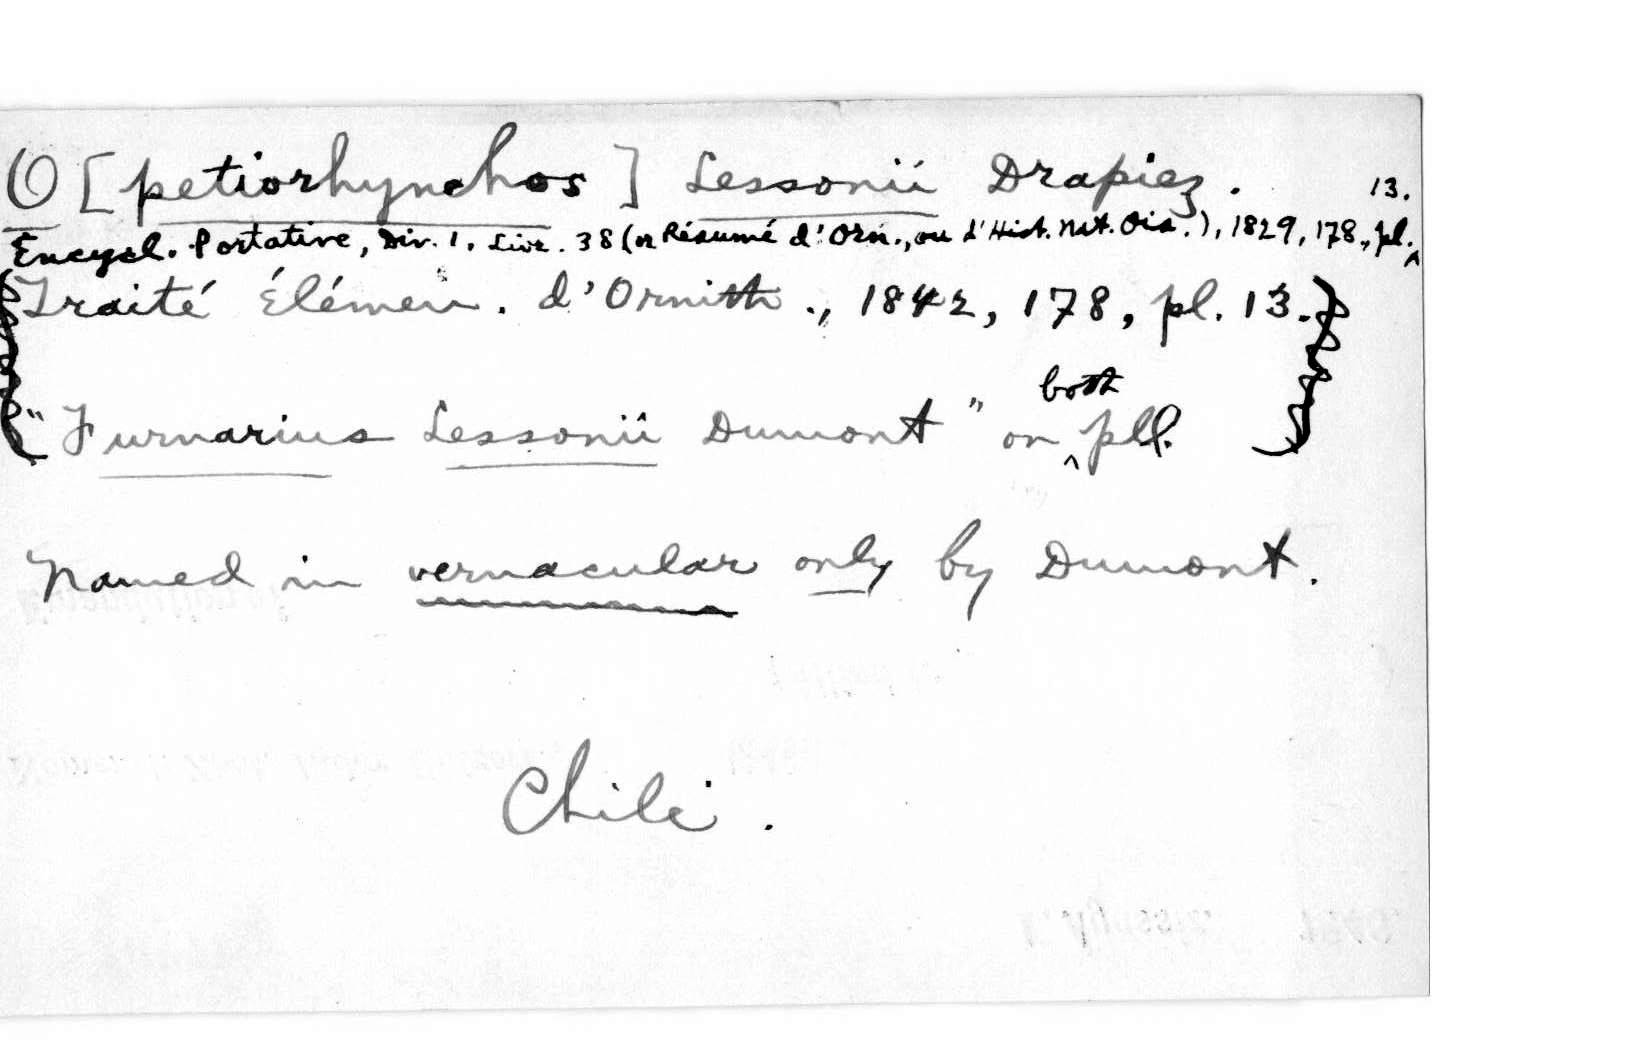 O[petiorhynchos] Lessonii Drapiez.
Encycl. Portative, Div. 1, Livr. 38 (or Résumé d'Orn., ou d'Hist. Nat. Ois.), 1829, 178, pl. 13.
Traité Élémen. d'Ornith., 1842, 178, pl. 13.
"Furnarius Lessonii Dumont" on both pll.
Named in vernacular only by Dumont.
Chili.